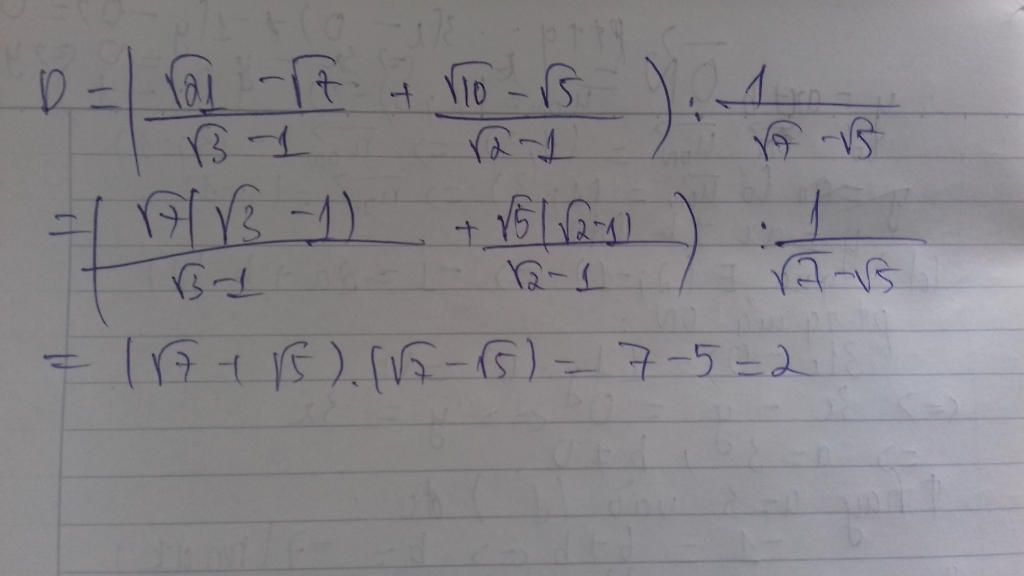 D = ( (√21 - √7)/(√3 - 1) + (√10 - √5)/(√2 - 1) ) : 1/(√7 - √5)
= ( √7(√3 - 1)/(√3 - 1) + √5(√2 - 1)/(√2 - 1) ) : 1/(√7 - √5)
= (√7 + √5).(√7 - √5) = 7 - 5 = 2